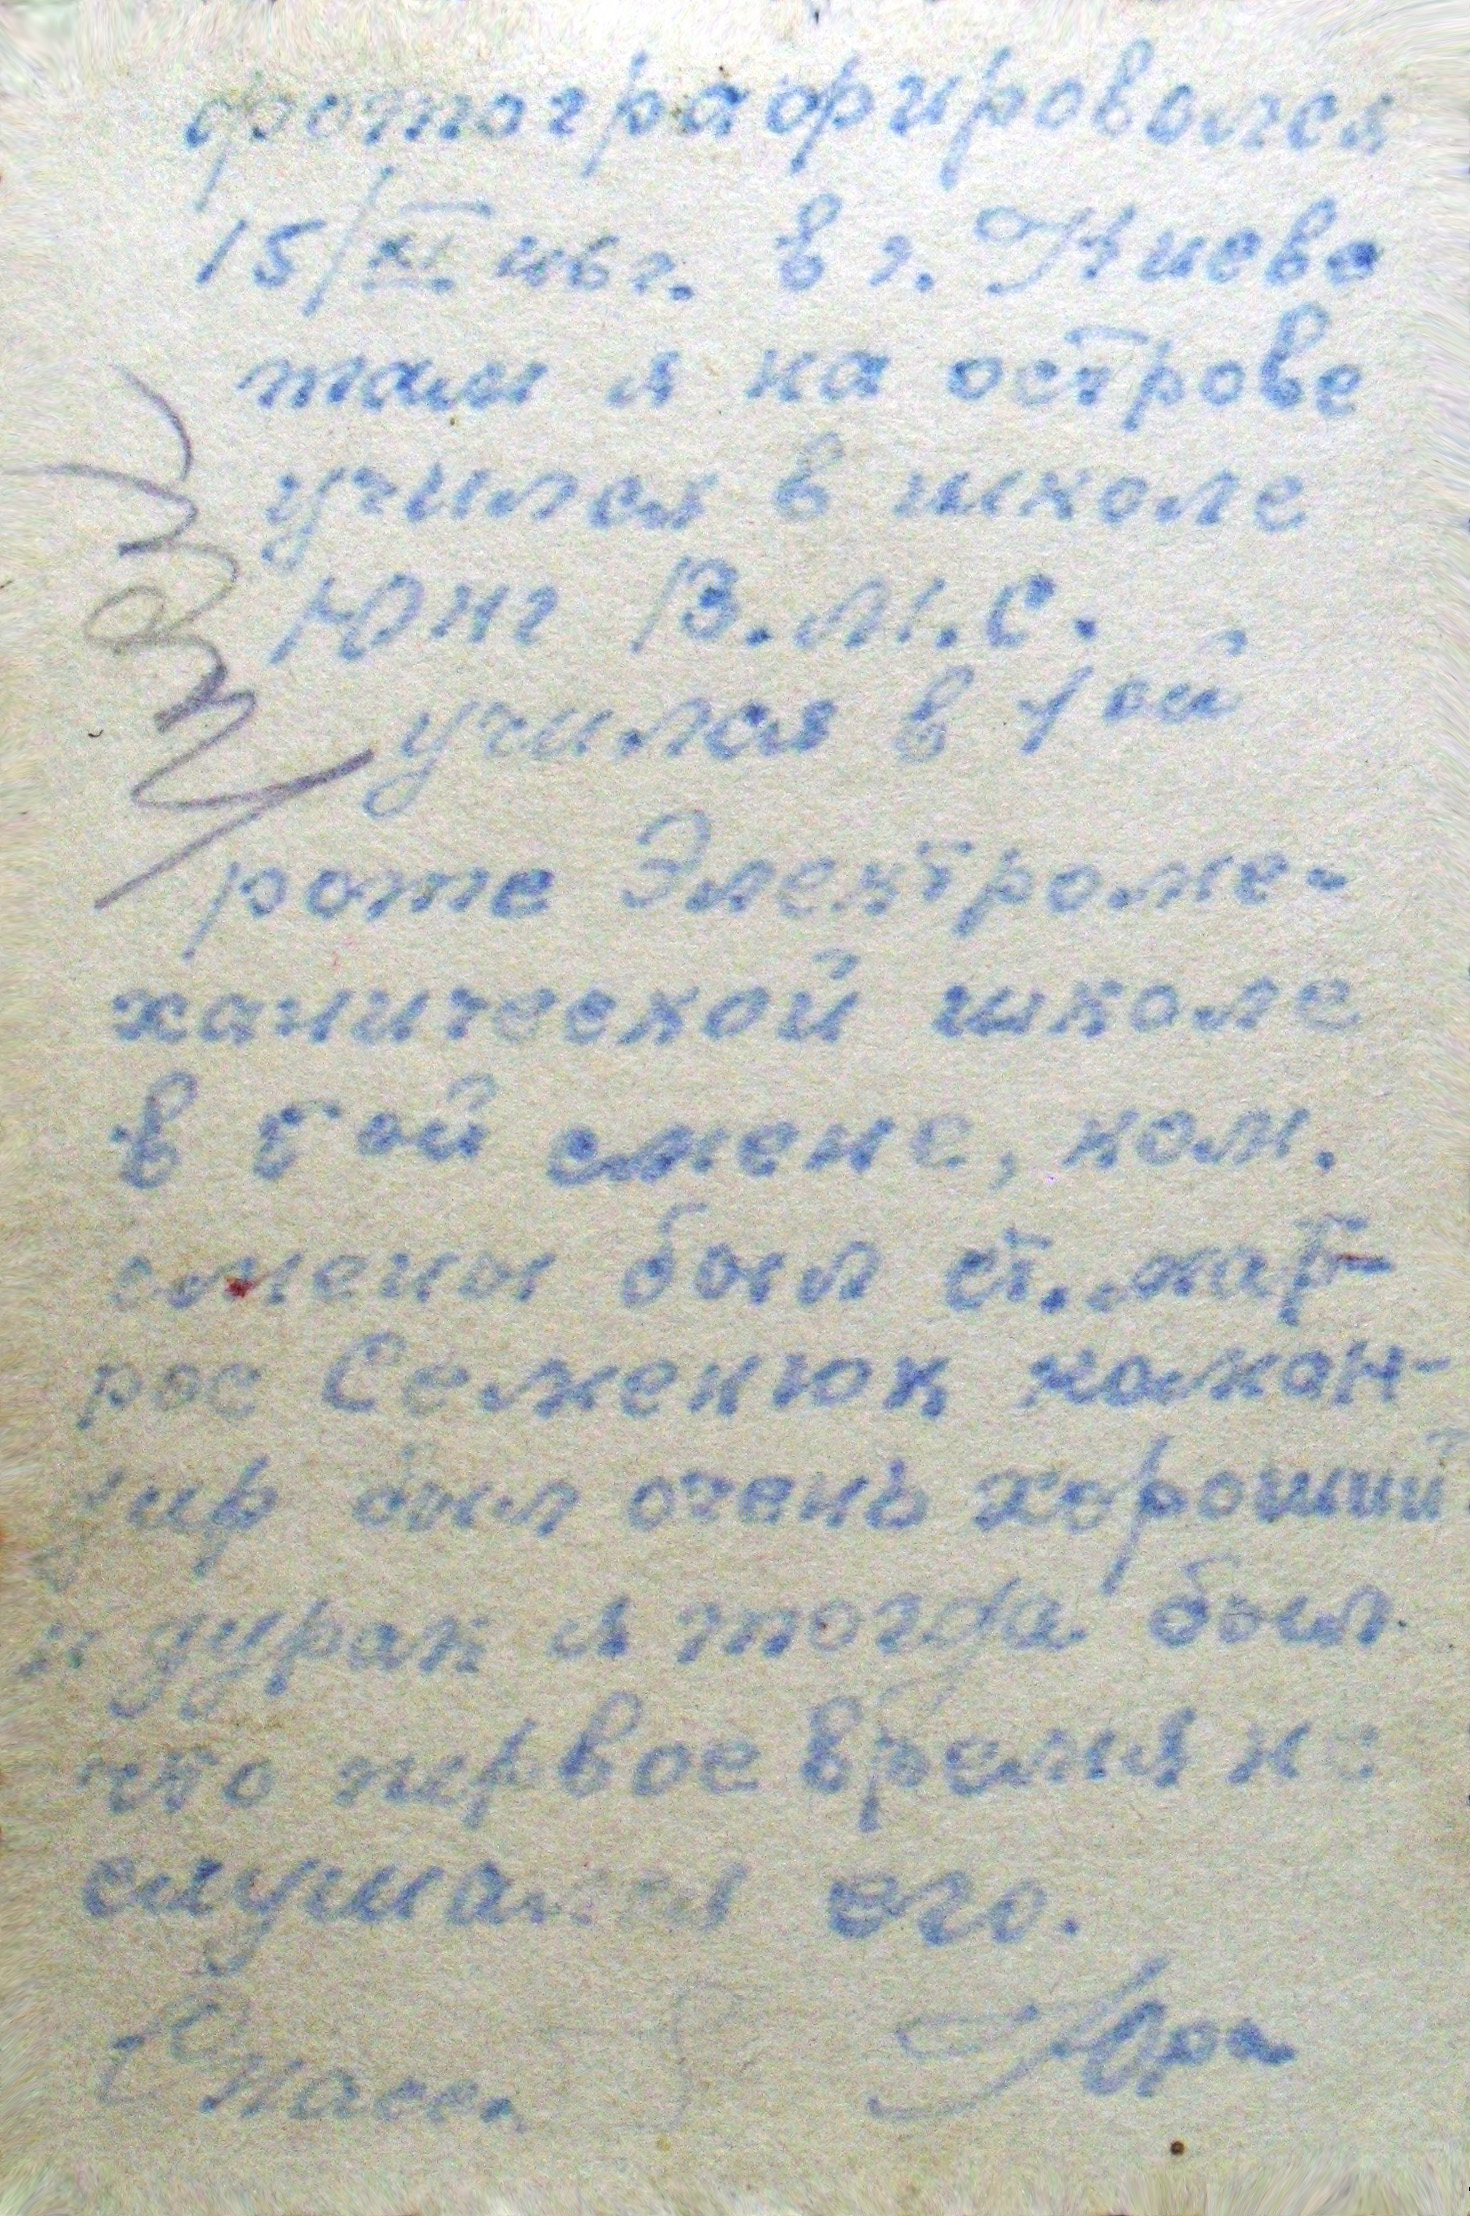 фотографировался
15/XI 46г. в г. Киеве
там я на острове
учился в школе
Юнг В.М.С.
учился в 1ой
роте Электроме-
ханической школе
в 5ой смене, ком.
смены был ст. мат-
рос Семенюк коман-
дир был очень хороший
и дурак я тогда был
что первое время не
слушался его.